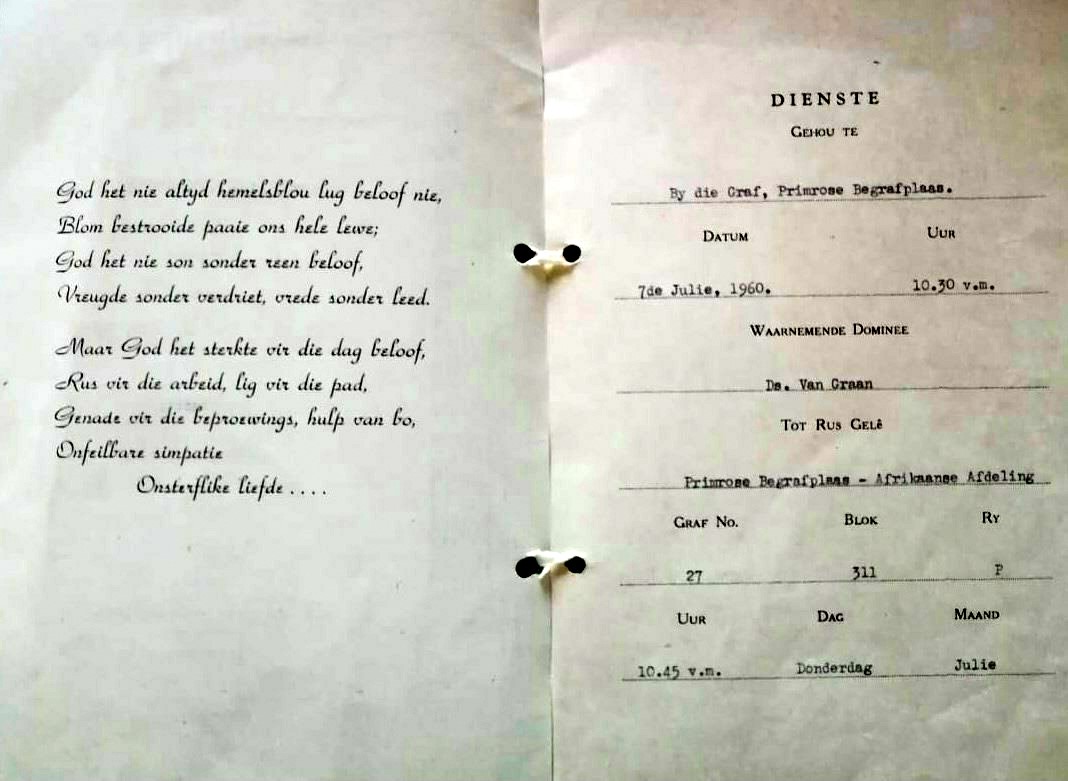 God het nie altyd hemelsblou lug beloof nie,
Blom bestrooide paaie ons hele lewe;
God het nie son sonder reen beloof,
Vreugde sonder verdriet, vrede sonder leed.
Maar God het sterkte vir die dag beloof,
Rus vir die arbeid, lig vir die pad,
Genade vir die beproewings, hulp van bo,
Onfeilbare simpatie
Onsterflike liefde . . . .
DIENSTE
GEHOU TE
By die Graf, Primrose Begrafplaas.
DATUM UUR
7de Julie, 1960. 10.30 v.m.
WAARNEMENDE DOMINEE
Ds. Van Graan
TOT RUS GELÊ
Primrose Begrafplaas - Afrikaanse Afdeling
GRAF NO. BLOK RY
27 311 P
UUR DAG MAAND
10.45 v.m. Donderdag Julie